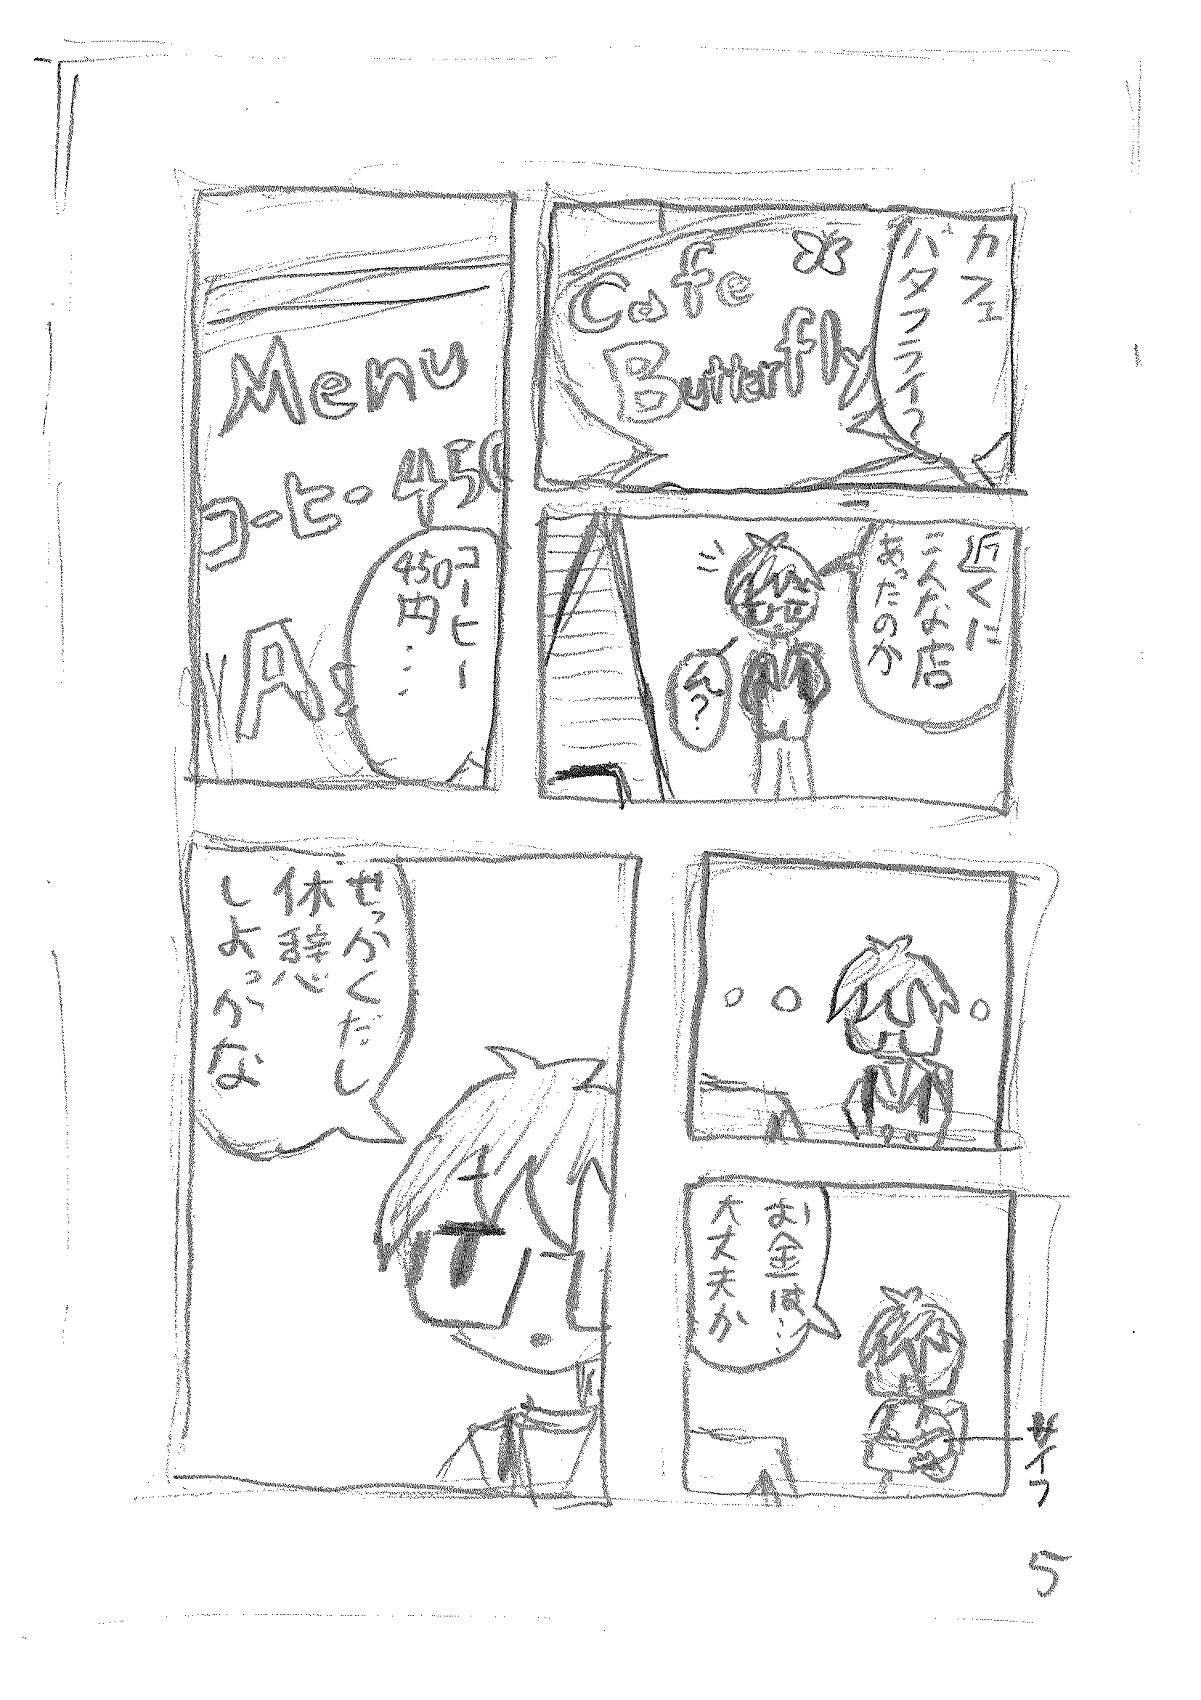 カフェ
バタフライ?
Cafe
Butterfly
近くに
こんな店
あったのか
ん?
Menu
コーヒー 450
A
コーヒー
450
円……
お金は…
大丈夫か
サイフ
せっかくだし
休憩
しよっかな
5